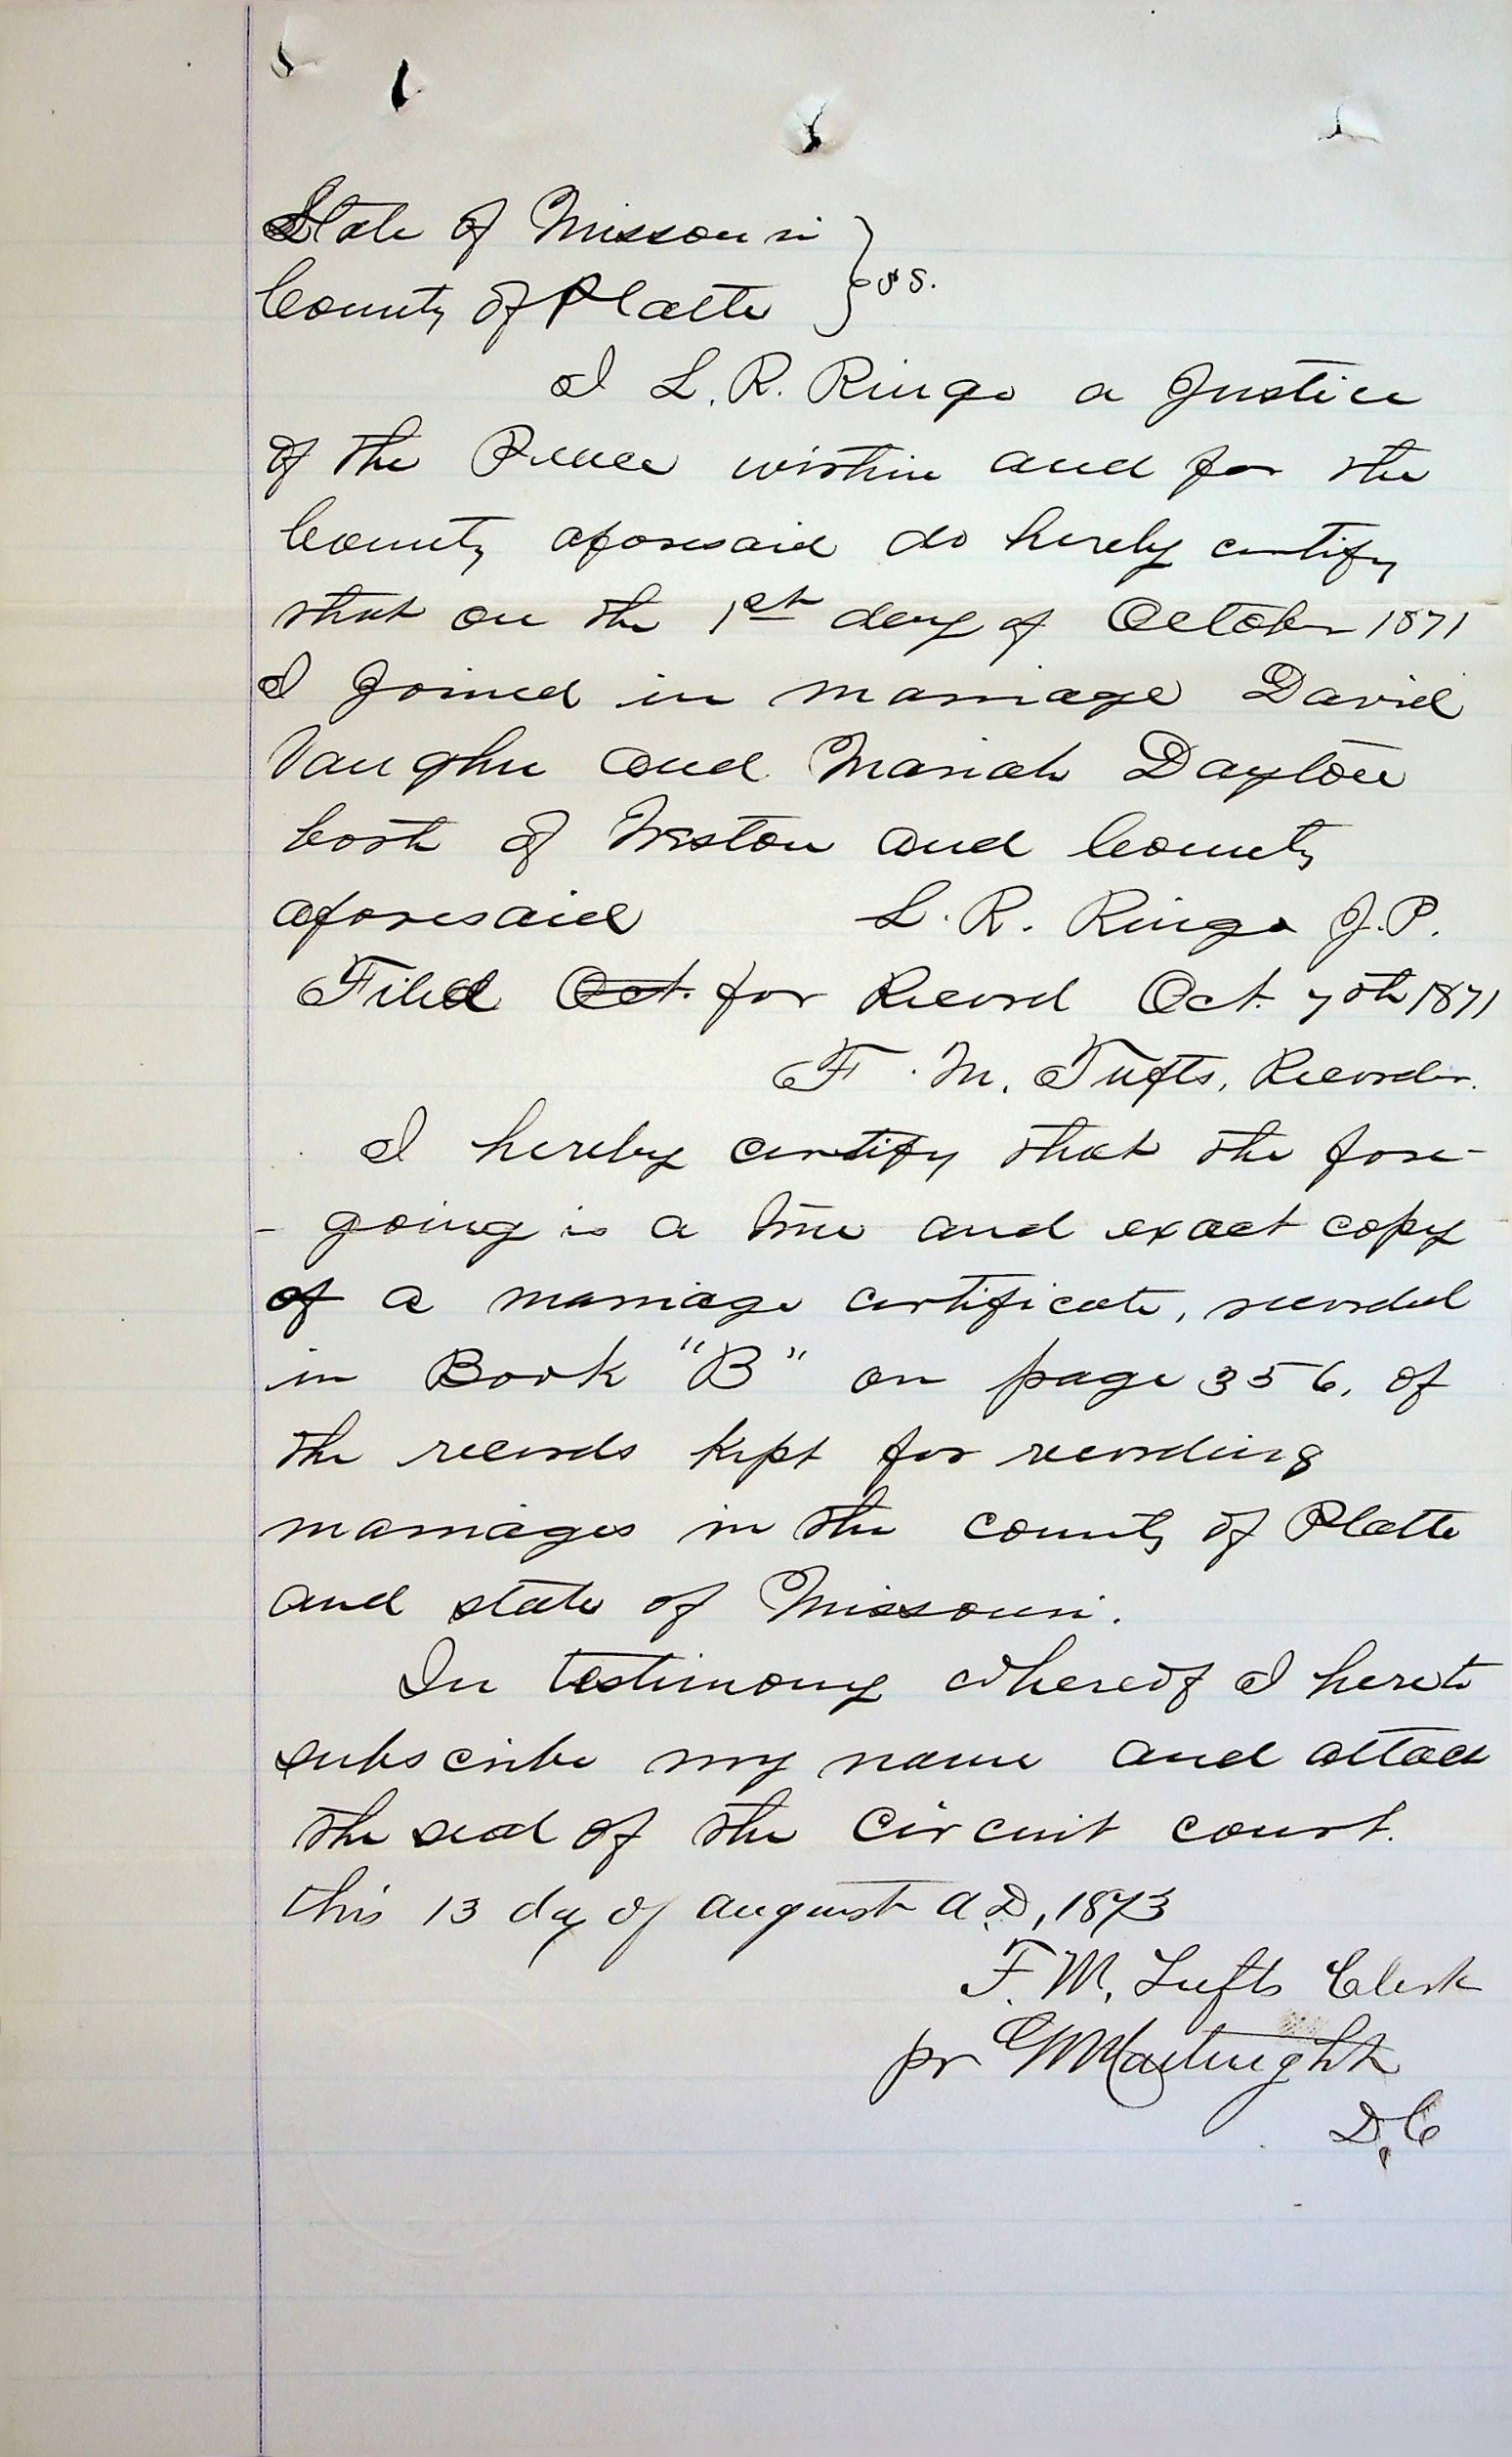 State of Missouri } ss.
County of Platte
I L. R. Ringo a Justice
of the Peace within and for the
County aforesaid do hereby certify
that on the 1st day of October 1871
I joined in marriage David
Vaughn and Mariah Dayton
both of Weston and County
aforesaid L. R. Ringo J.P.
Filed Oct. for Record Oct. 7th 1871
F. M. Tufts, Recorder.
I hereby certify that the fore-
- going is a true and exact copy
of a marriage certificate, recorded
in Book "B" on page 356, of
the records kept for recording
marriages in the county of Platte
and state of Missouri.
In testimony whereof I hereto
subscribe my name and attach
the seal of the Circuit court.
this 13 day of august A.D, 1873
F. M. Tufts Clerk
pr
D.C